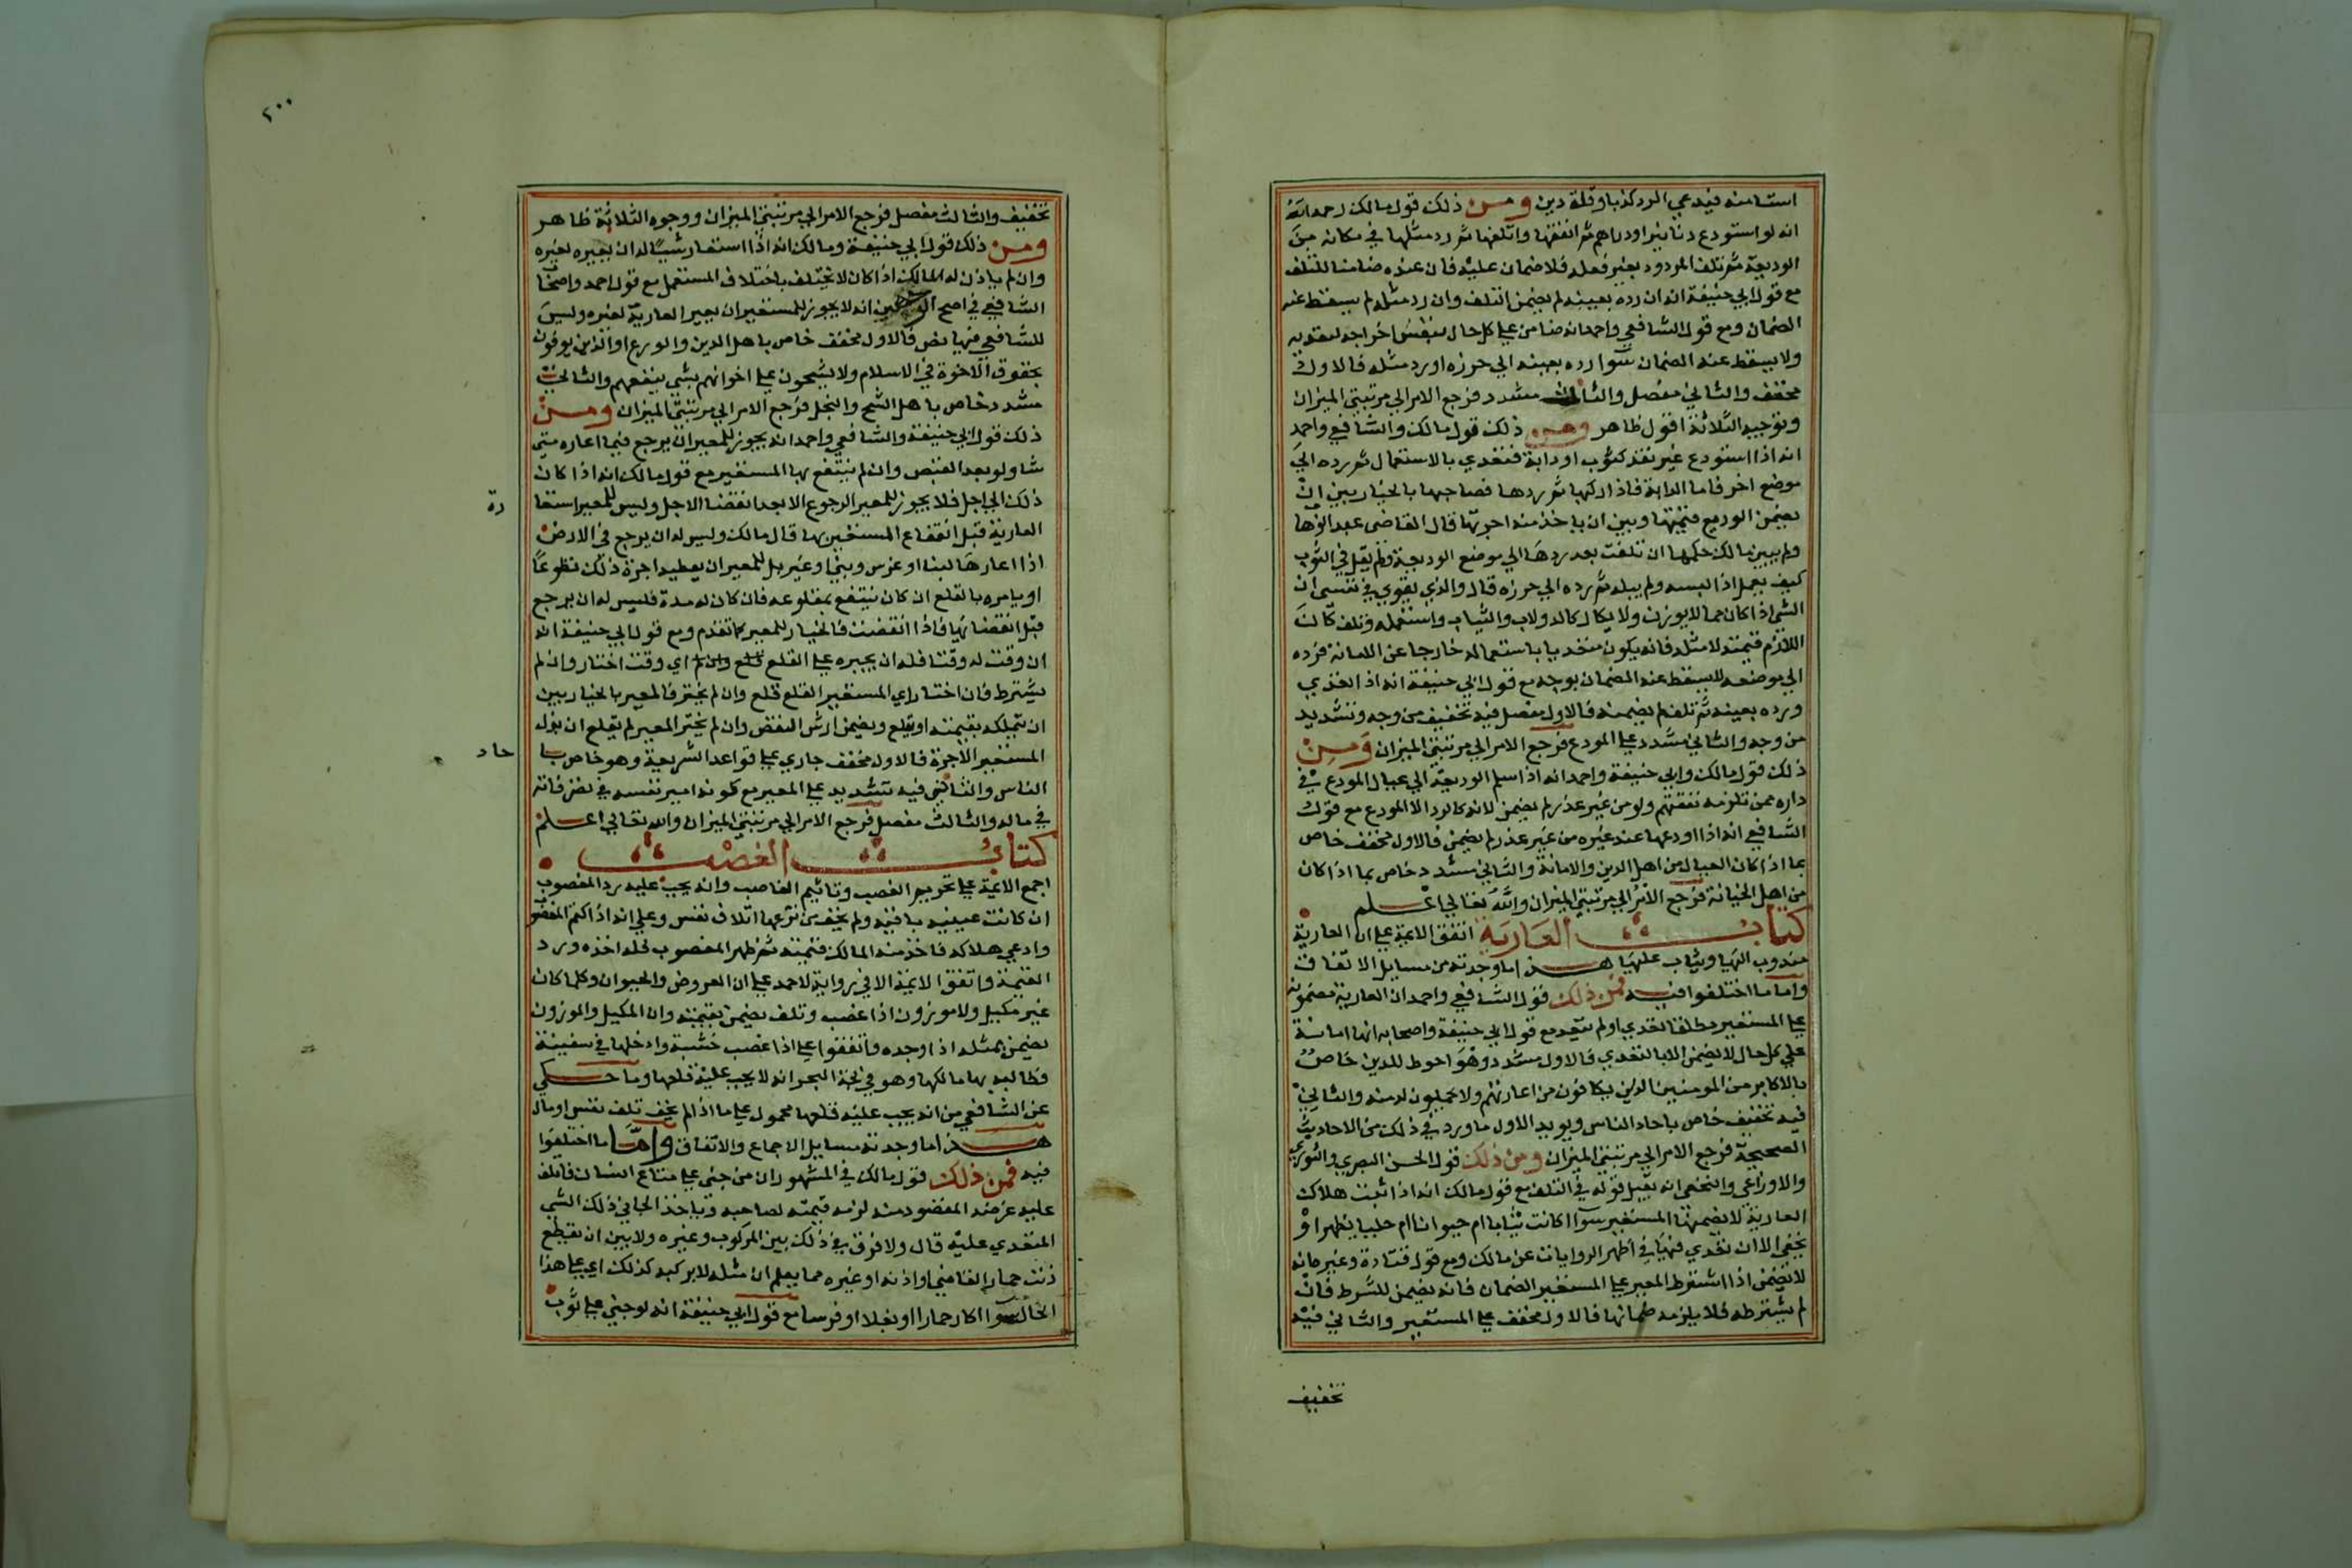 استامنه فيدعي الرد كذبا وقلة دين ومن ذلك قول مالك رحمه الله
انه لو استودع دنانير او دراهم ثم انفقها واتلفها ثم رد مثلها في مكانه من
الوديعة ثم تلف المردود بغير فعله فلا ضمان عليه فان عنده ضامنا للتلف
مع قول ابي حنيفة انه ان رده بعينه لم يضمن التلف وان رد مثله لم يسقط عنه
الضمان ومع قول الشافعي واحمد انه ضامن على كل حال بنفس اخراجه لتعديه
ولا يسقط عنه الضمان سوا رده بعينه الي حرزه او رد مثله فالاول
مخفف والثاني مفصل والثالث مشدد فرجع الامر الي مرتبتي الميزان
وتوجيه الثلاثة اقول ظاهر ومن ذلك قول مالك والشافعي واحمد
انه اذا استودع غير نقد كثوب او دابة فتعدي بالاستعمال ثم رده الي
موضع اخر فاما الدابة فاذا ركبها ثم ردها فصاحبها بالخيار بين ان
يضمن الوديع قيمتها وبين ان ياخذ منه اجرتها قال القاضى عبد الوهاب
ولم يبين مالك حكمها ان تلفت بعد ردها الي موضع الوديعة ولم يقل في الثوب
كيف يعمل اذا لبسه ولم يبله ثم رده الي حرزه قال والذي يقوي في نفسى ان
الشي اذا كان مما لا يوزن ولا يكال كالدولاب والثياب واستعمله وتلف كان
اللازم قيمته لا مثله فانه يكون متعديا باستعماله خارجا عن الامانة فرده
الي موضعه لا يسقط عنه الضمان بوجه مع قول ابي حنيفة انه اذا تعدي
ورده بعينه ثم تلف لم يضمنه فالاول مفصل فيه تخفيف من وجه وتشديد
من وجه والثاني مشدد على المودع فرجع الامر الي مرتبتي الميزان ومن
ذلك قول مالك وابي حنيفة واحمد انه اذا سلم الوديعة الي عيال المودع في
داره ممن تلزمه نفقتهم ولو من غير عذر لم يضمن لانه كالرد الا المودع مع قول
الشافعي انه اذا اودعها عند غيره من غير عذر لم يضمن فالاول مخفف خاص
بما اذا كان العيال من اهل الدين والامانة والثاني مشدد خاص بما اذا كان
من اهل الخيانة فرجع الامر الي مرتبتي الميزان والله تعالي اعلم
كتاب العارية اتفق الائمة على ان العارية
مندوب اليها ويثاب عليها هذا ما وجدته من مسايل الاتفاق
واما ما اختلفوا فيه فمن ذلك قول الشافعي واحمد ان العارية مضمونة
على المستعير مطلقا تعدي او لم يتعد مع قول ابي حنيفة واصحابه انها امانة
على كل حال لا يضمن الا بالتعدي فالاول مشدد وهو احوط للدين خاص
بالاكابر من المومنين الذين يكافون من اعارتهم ولا يميلون لمنه والثاني
فيه تخفيف خاص باحاد الناس ويويد الاول ما ورد في ذلك من الاحاديث
الصحيحة فرجع الامر الي مرتبتي الميزان ومن ذلك قول الحسن البصري والثوري
والاوزاعي والنخعي انه يقبل قوله في التلف مع قول مالك انه اذا ثبت هلاك
العارية لا يضمنها المستعير سوا اكانت ثيابا ام حيوانا ام حليا يظهر او
يخفي الا ان تعدي فيها في اظهر الروايات عن مالك ومع قول قتادة وغيره انه
لا يضمن اذا اشترط المعير على المستعير الضمان فانه يضمن للشرط فان
لم يشترطه فلا يلزمه ضمانها فالاول مخفف على المستعير والثاني فيه
تخفيف
٢٠٠
تخفيف والثالث مفصل فرجع الامر الي مرتبتي الميزان ووجوه الثلاثة ظاهر
ومن ذلك قول ابي حنيفة ومالك انه اذا استعار شيئا له ان يعيره لغيره
وان لم ياذن له المالك اذا كان لا يختلف باختلاف المستعمل مع قول احمد واصحاب
الشافعي في اصح الوجهين انه لا يجوز للمستعير ان يعير العارية لغيره وليس
للشافعي فيها نص فالاول مخفف خاص باهل الدين والورع او الذين يوفون
بحقوق الاخوة في الاسلام ولا يشحون على اخوانهم بشي ينفعهم والثاني
مشدد خاص باهل الشح والبخل فرجع الامر الي مرتبتي الميزان ومن
ذلك قول ابي حنيفة والشافعي واحمد انه يجوز للمعير ان يرجع فيما اعاره متى
شا ولو بعد القبض وان لم ينتفع بها المستعير مع قول مالك انه اذا كان
ذلك الي اجل فلا يجوز للمعير الرجوع الا بعد انقضا الاجل وليس للمعير استعا
رة
العارية قبل انتفاع المستعير بها قال مالك وليس له ان يرجع في الارض
اذا اعارها لبنا او غرس وبنى او غير بل للمعير ان يعطيه اجرة ذلك تطوعا
او يامره بالقلع ان كان ينتفع بمقلوعه فان كان له مدة فليس له ان يرجع
قبل انقضائها فاذا انقضت فالخيار للمعير كما تقدم ومع قول ابي حنيفة انه
ان وقت له وقتا فله ان يجبره على القلع قلع وان لم اي وقت اختار وان لم
يشترط فان اختار اي المستعير القلع قلع وان لم يختر فالمعير بالخيار بين
ان يتملكه بقيمته او يقلع ويضمن ارش النقض وان لم يختر المعير لم يقلع ان بذل
المستعير الاجرة فالاول مخفف جاري على قواعد الشريعة وهو خاص با
حاد
الناس والثاني فيه تشديد على المعير مع كونه امير نفسه في نضر فانه
في ماله والثالث مفصل فرجع الامر الي مرتبتي الميزان والله تعالي اعلم
كتاب الغصب
اجمع الائمة على تحريم الغصب وتاثيم الغاصب وانه يجب عليه رد المغصوب
ان كانت عينه باقية ولم يخف من نزعها اتلاف نفس وعلى انه اذا كتم المغصوب
وادعي هلاكه فاخذ منه المالك قيمته ثم ظهر المغصوب فله اخذه ورد
القيمة واتفق الائمة الا في رواية لاحمد على ان العروض والحيوان وكلما كان
غير مكيل ولا موزون اذا غصب وتلف يضمن بقيمته وان المكيل والموزون
يضمن بمثله اذا وجده واتفقوا على اذا غصب خشبة وادخلها في سفينة
وطالبه بها مالكها وهو في لجة البحر انه لا يجب عليه قلعها وما حكي
عن الشافعي من انه يجب عليه قلعها محمول على ما اذا لم يخف تلف نفس او مال
هذا ما وجدته مسايل الاجماع والاتفاق واما ما اختلفوا
فيه فمن ذلك قول مالك في المشهور ان من جنى على متاع انسان فاتلف
عليه غرضه المقصود منه لزمه قيمته لصاحبه وياخذ الجاني ذلك الشي
المتعدي عليه قال ولا فرق في ذلك بين المركوب وغيره ولا بين ان يقطع
ذنب حمار القاضي او اذنه او غيره مما يعلم ان مثله لا يركبه كذلك اي على هذا
الحال سوا اكان حمارا او بغلا او فرسا مع قول ابي حنيفة انه لو جنى على ثوب